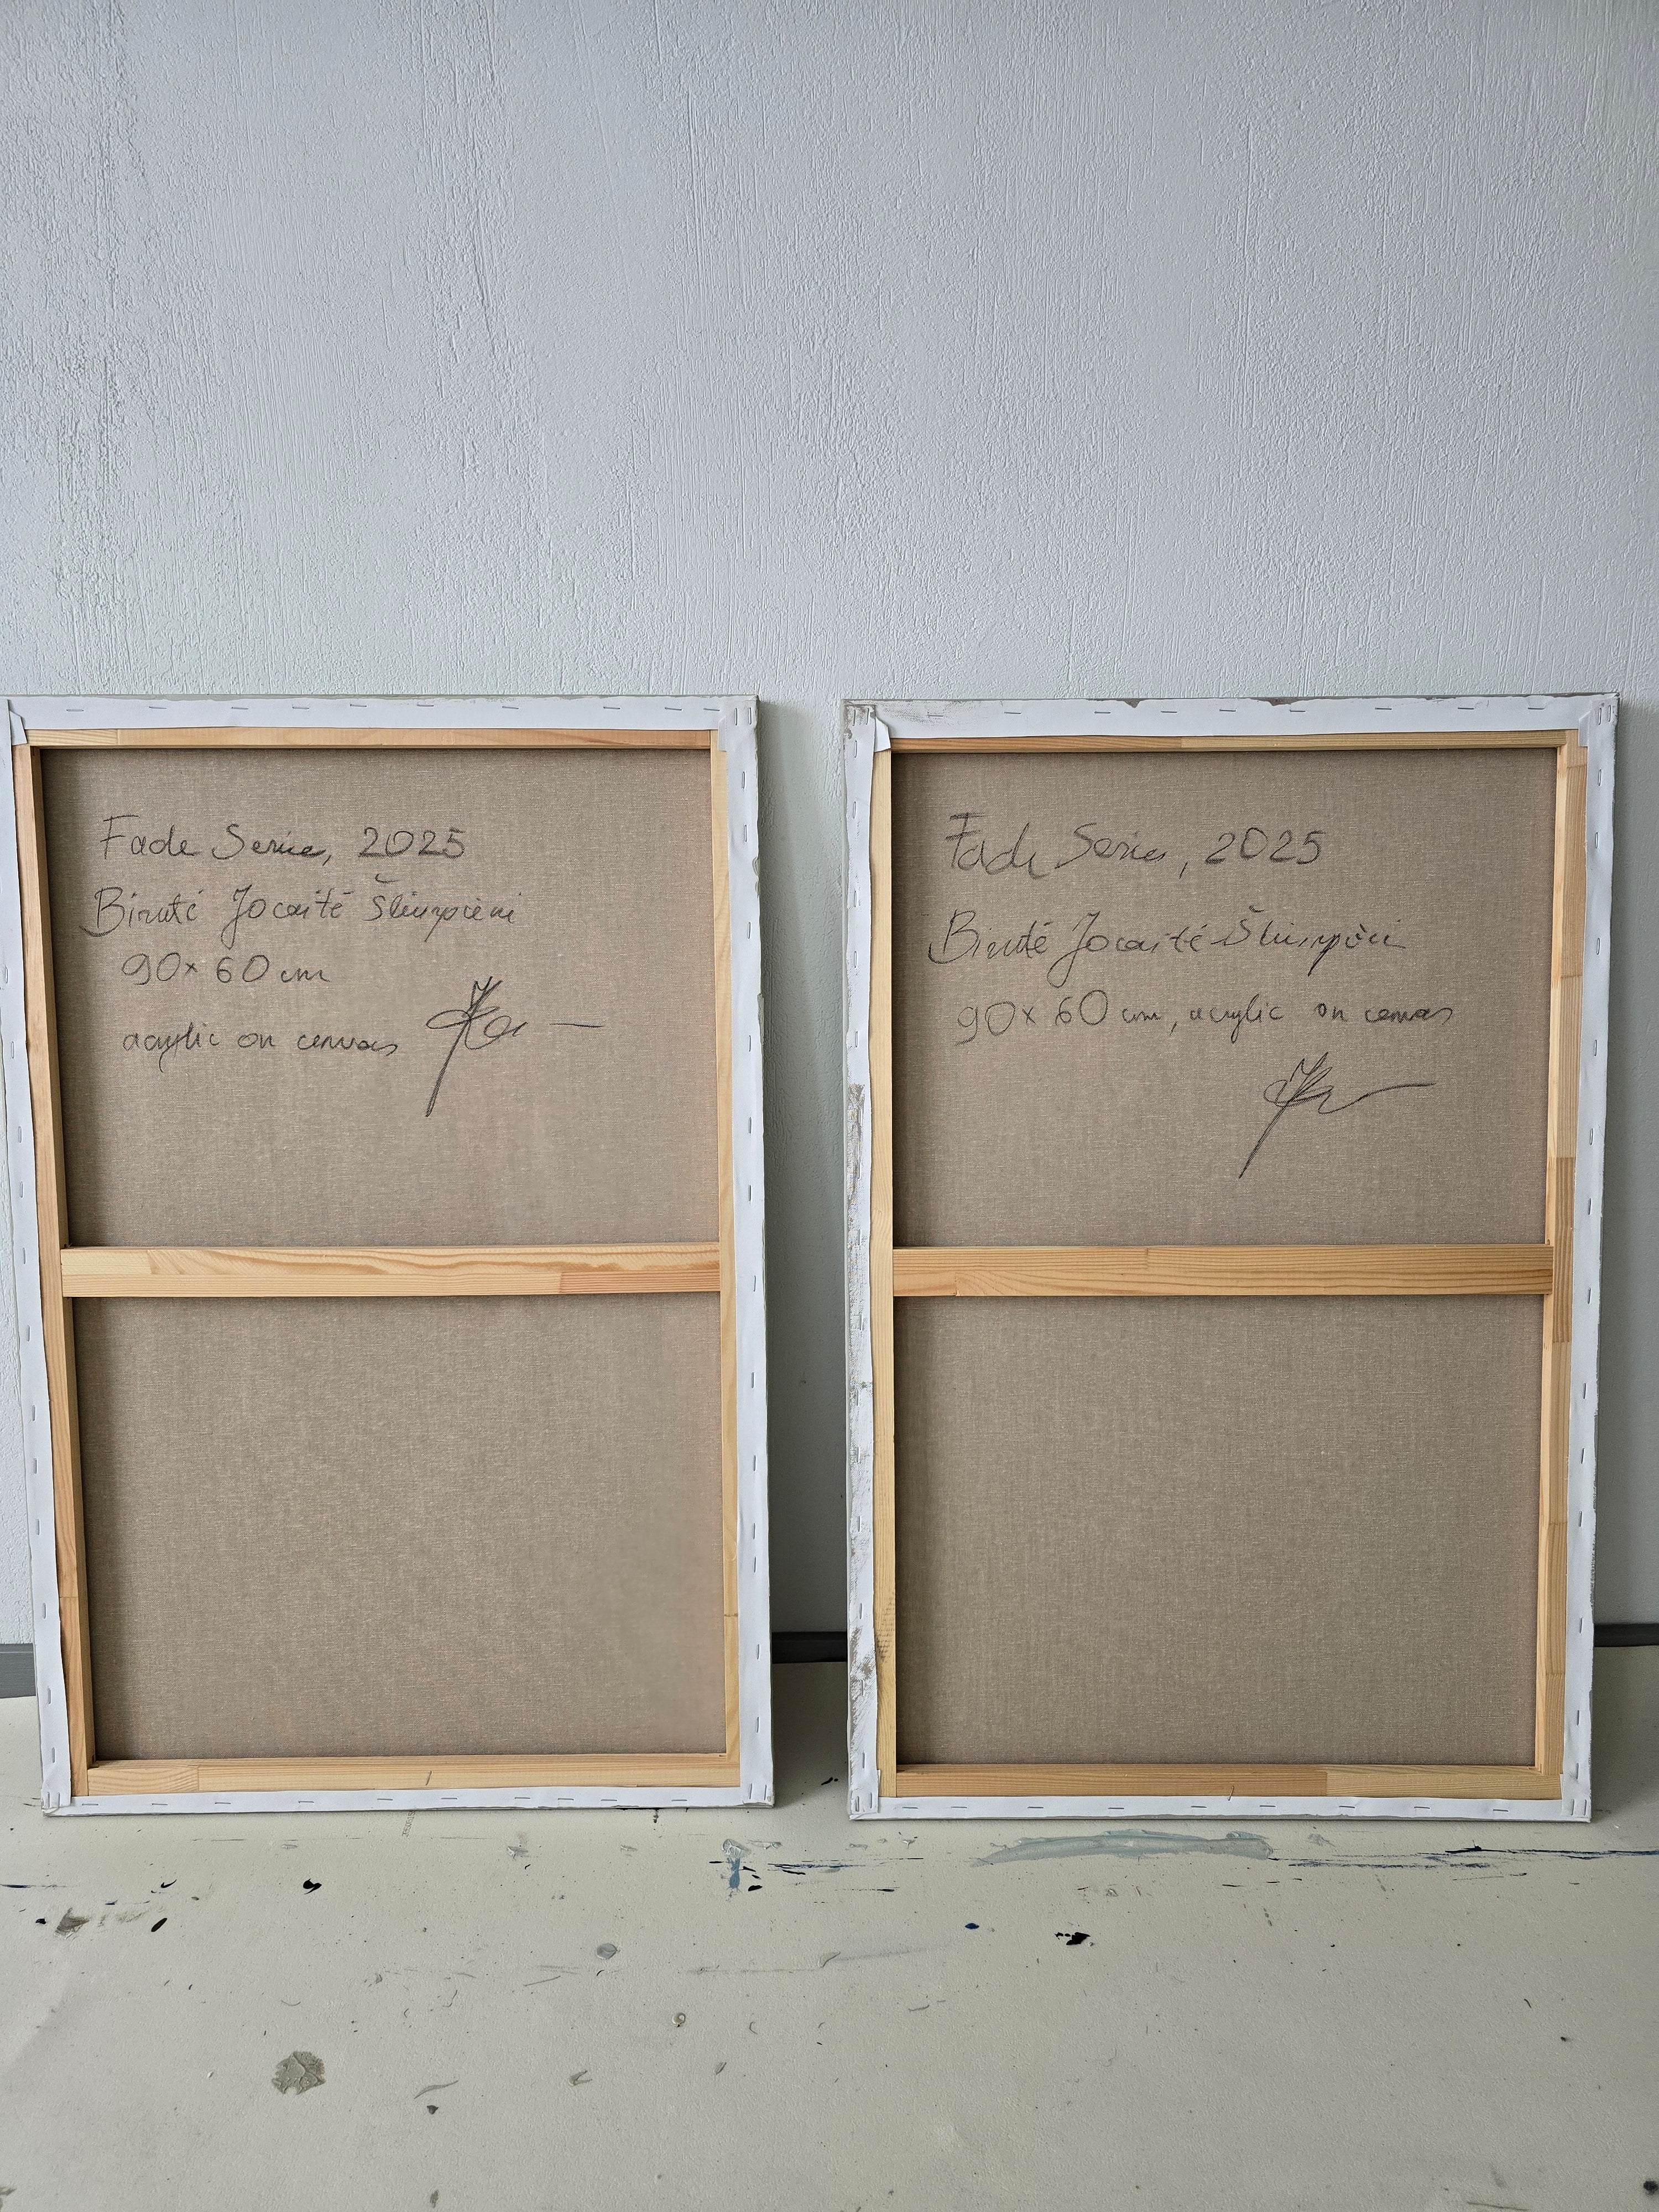 Fade Series, 2025
Birutė Jocaitė
90x60 cm
acrylic on canvas
Fade Series, 2025
Birutė Jocaitė
90x60 cm, acrylic on canvas